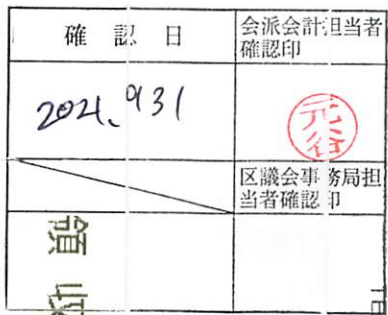 確認日
会派会計担当者
確認印
2021、931
元谷
区議会事務局担
当者確認印
領収